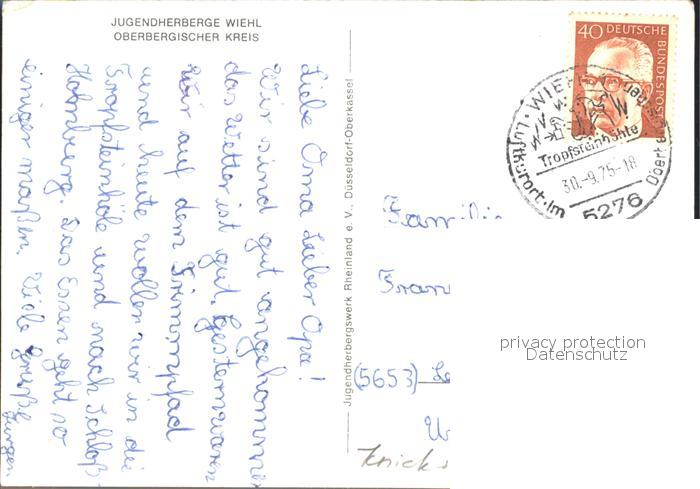 JUGENDHERBERGE WIEHL
OBERBERGISCHER KREIS
Liebe Oma Lieber Opa!
Wir sind gut angekommen
das Wetter ist gut. Gestern waren
wir auf dem Trimmpfad
und heute wollen wir in die
Tropfsteinhöle und nach Schloß
Homberg. Das Essen geht so
einiger maßen. Viele Grüße
Jürgen
Jugendherbergswerk Rheinland e. V., Düsseldorf-Oberkassel
40 DEUTSCHE
BUNDESPOST
WIEHL
Tropfsteinhöhle
30.-9.75-18
Luftkurort·im
5276
Famili
Fran
(5653) Le
privacy protection
Datenschutz